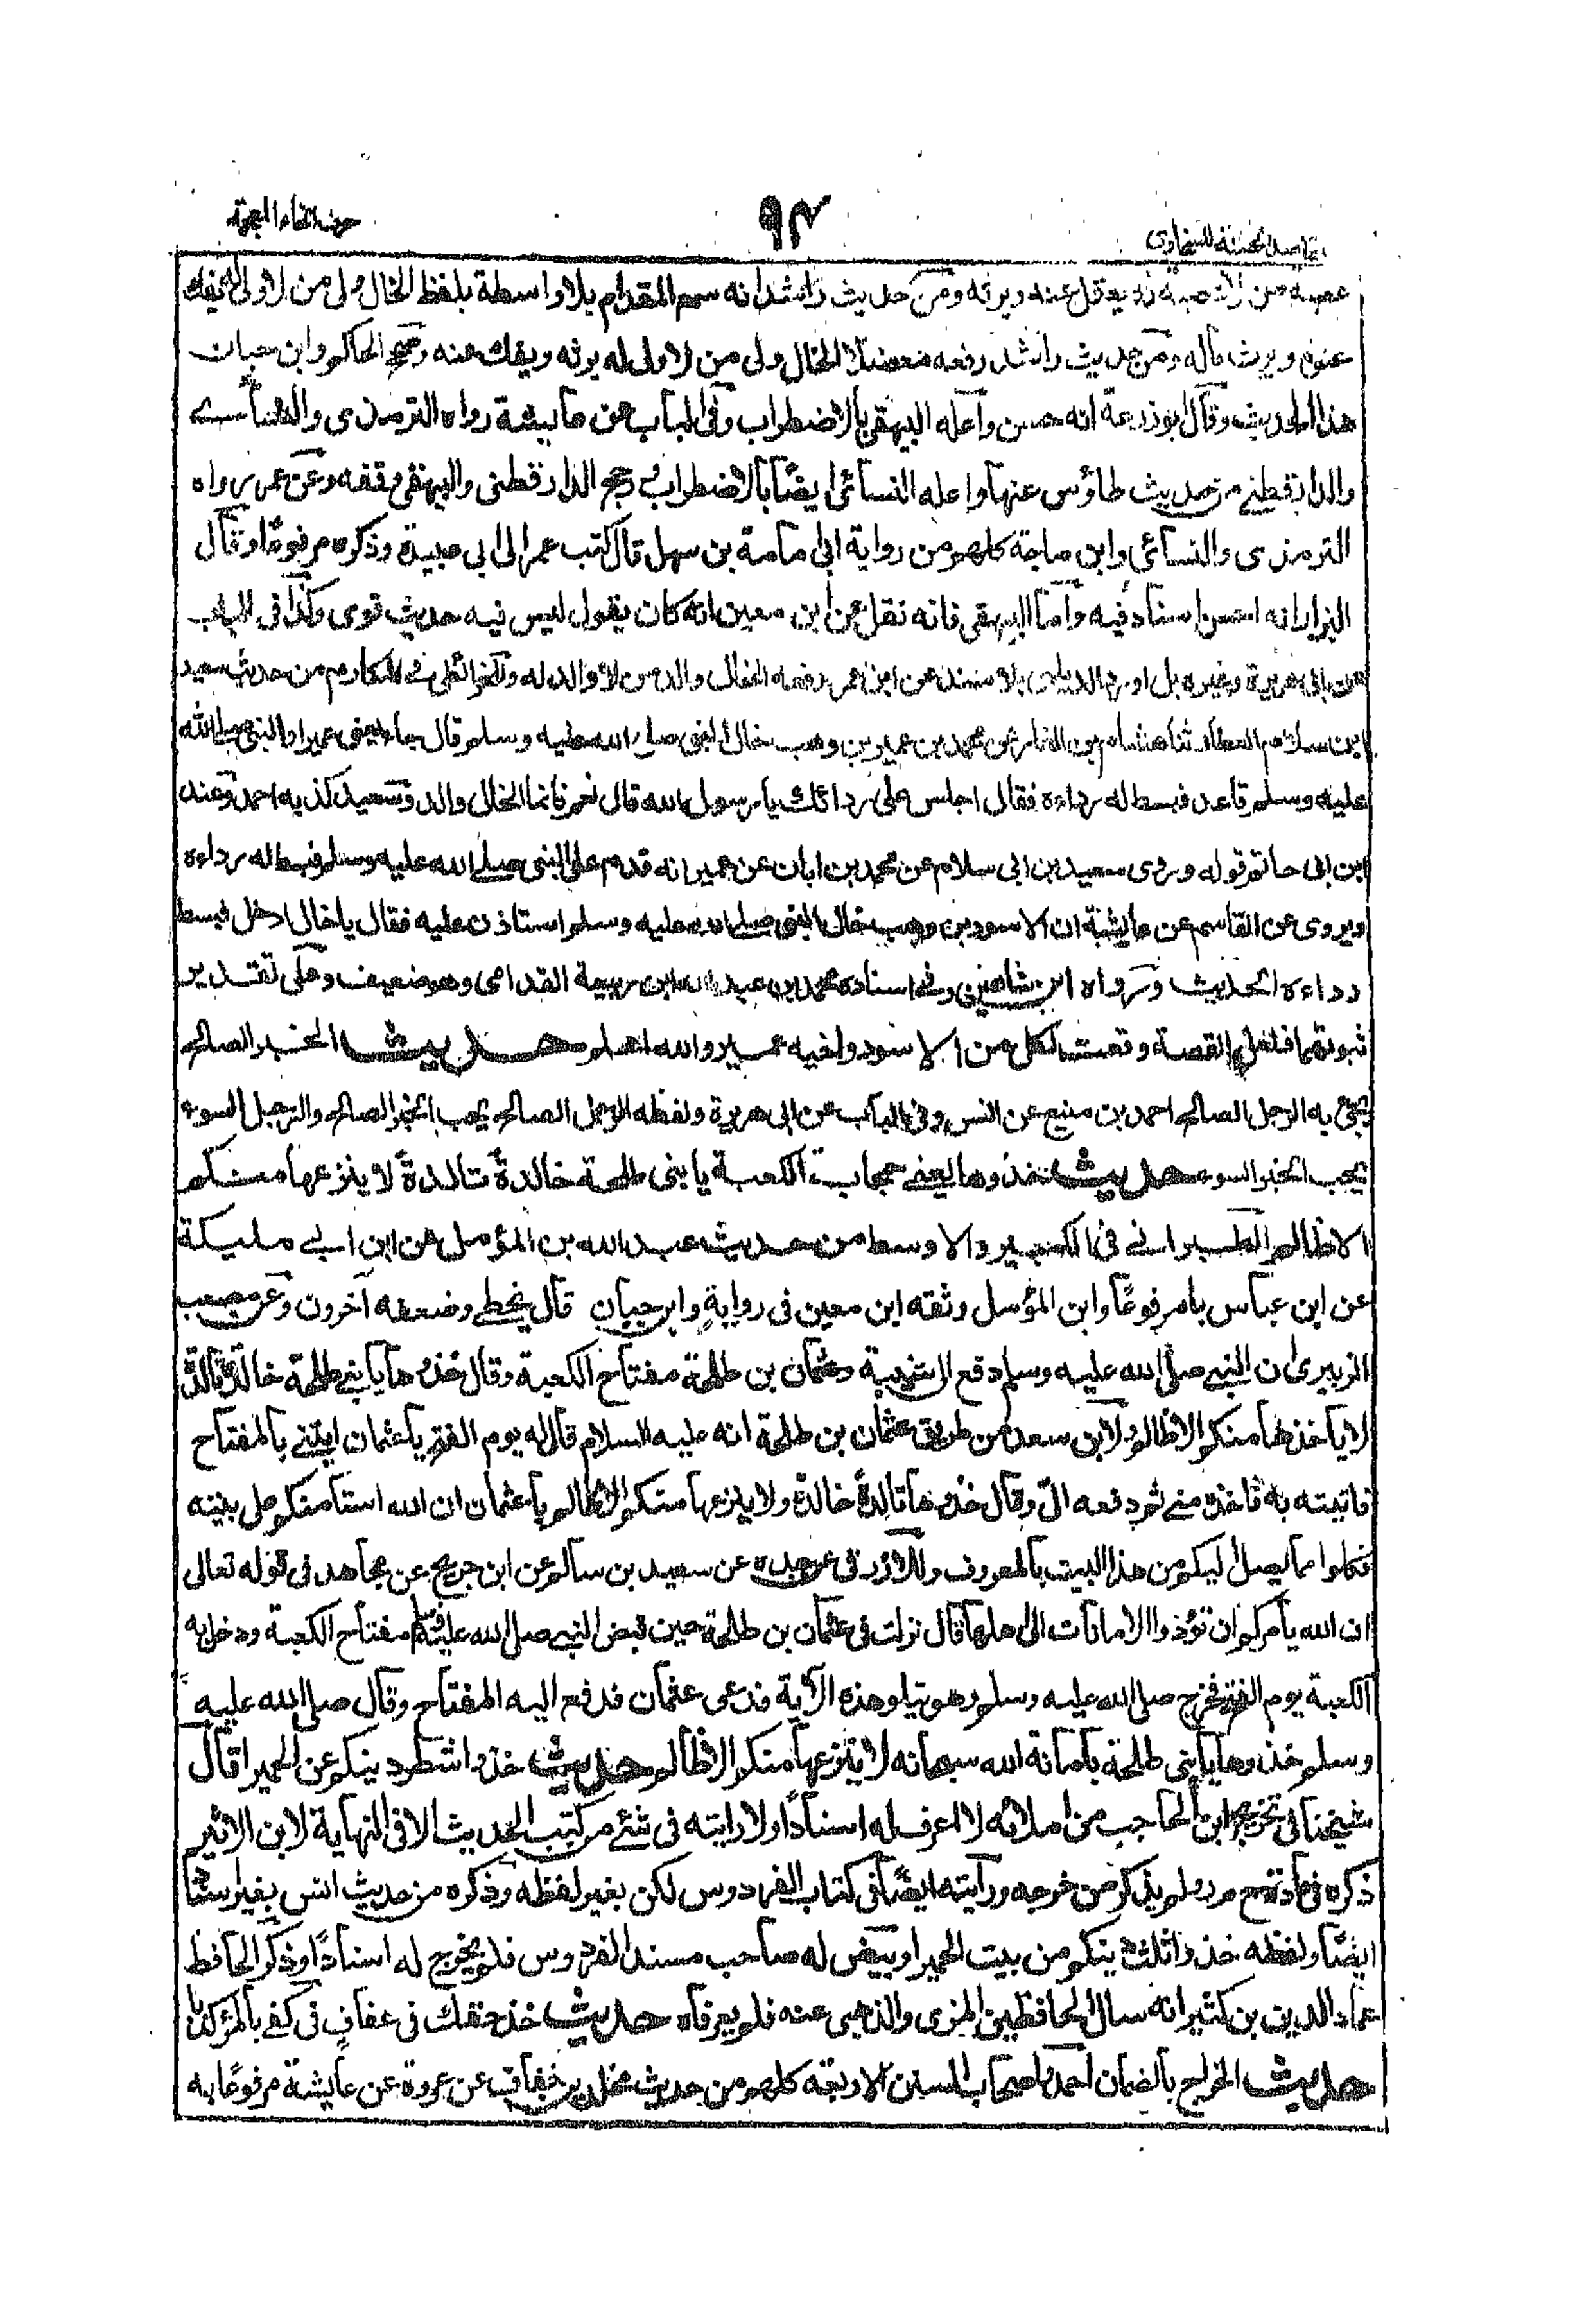 حرف الخاء المعجمة
٩٤
مقاصد الحسنة للسخاوى
يعقل عنه ويرثه ومن حديث راشد انه سمع المقدام بلا واسطة بلفظ الخال ولى من لا ولى له يفك
عنوه ويرث ماله ومن حديث راشد رفعه معضلا الخال ولى من لا ولى له يرثه ويفك عنه وصححه الحاكم وابن حبان
هذا الحديث وقال ابو زرعة انه حسن واعله البيهقى بالاضطراب وفى الباب عن عايشة رواه الترمذى والنسائے
والدارقطنے من حديث طاؤس عنها واعله النسائى ايضًا بالاضطراب و رجح الدارقطنى والبيهقى وقفه وعن عمر رواه
الترمذى والنسائى وابن ماجة كلهم من رواية ابى امامة بن سهل قال كتب عمر الى ابى عبيدة وذكره مرفوعًا وقال
البزار انه احسن اسناد فيه واما البيهقى فانه نقل عن ابن معين انه كان يقول ليس فيه حديث قوى وكذا فى الباب
عن ابى هريرة وغيره بل اورد الديلمى بلا سند عن ابن عمر رفعه الخال والد من لا والد له وللخرائطى فے المكارم من حديث سعيد
ابن سلام العطار ثنا هشام بن الغاز عن محمد بن عمير بن وهب خال النبى صلى الله عليه وسلم قال جاء يعنى عميرا والنبى صلى الله
عليه وسلم قاعد فبسط له رداءه فقال اجلس على ردائك يا رسول الله قال نعم فانما الخال والد وسعيد كذبه احمد وعند
ابن ابى حاتم قوله وروى سعيد بن ابى سلام عن محمد بن ابان عن عمير انه قدم على النبى صلے الله عليه وسلم فبسط له رداءه
ويروى عن القاسم عن عايشة ان الاسود بن وهب خال النبى صلے الله عليه وسلم استاذن عليه فقال يا خال ادخل فبسط
رداءه الحديث ورواه ابن شاهين وفے اسناده محمد بن عبد الله ابن ربيعة القدامى وهو ضعيف وعلى تقدير
ثبوتهما فلعل القصة وقعت لكل من الاسود واخيه عمير والله اعلم حديث الخبر الصالح
يجئ به الرجل الصالح احمد بن منيع عن انس وفى الباب عن ابى هريرة ولفظه الرجل الصالح يحب الخبر الصالح والرجل السوء
يحب الخبر السوء حديث خذوها يعنے حجابة الكعبة يا بنى طلحة خالدةً تالدةً لا ينزعها منكم
الا ظالم الطبرانے فى الكبير والاوسط من حديث عبد الله بن المؤمل عن ابن ابے مليكة
عن ابن عباس بامرفوعًا وابن المؤمل وثقه ابن معين فى رواية وابن حبان قال يخطے وضعفه آخرون وعن مصعب
الزبيرى ان النبے صلى الله عليه وسلم دفع الى شيبة وعثمان بن طلحة مفتاح الكعبة وقال خذوها يا بنے طلحة خالدة تالدة
لا ياخذها منكم الا ظالم ولابن سعد من طريق عثمان بن طلحة انه عليه السلام قال له يوم الفتح يا عثمان ايتنے بالمفتاح
فاتيته به فاخذه منے ثم دفعه الىّ وقال خذوها تالدةً خالدةً ولا ينزعها منكم الا ظالم يا عثمان ان الله استأمنكم على بيته
فكلوا مما يصل اليكم من هذا البيت بالمعروف وللازرقى عن جده عن سعيد بن سالم عن ابن جريج عن مجاهد فى قوله تعالى
ان الله يأمركم ان تؤدوا الامانات الى اهلها قال نزلت فى عثمان بن طلحة حين قبض النبے صلى الله عليه وسلم مفتاح الكعبة ودخل به
الكعبة يوم الفتح فخرج صلى الله عليه وسلم وهو يتلو هذه الآية فدعى عثمان فدفع اليه المفتاح وقال صلى الله عليه
وسلم خذوها يا بنى طلحة بامانة الله سبحانه لا ينزعها منكم الا ظالم حديث خذوا شطر دينكم عن الحميرا قال
شيخنا فى تخريج ابن الحاجب من املائه لا اعرف له اسنادًا ولا رايته فى شئے من كتب الحديث الا فى النهاية لابن الاثير
ذكره فى مادة ح م ر ولم يذكر من خرجه ورأيته ايضًا فى كتاب الفردوس لكن بغير لفظه وذكره من حديث انس بغير اسناد
ايضًا ولفظه خذوا ثلث دينكم من بيت الحميرا وبيض له صاحب مسند الفردوس فلم يخرج له اسنادًا وذكر الحافظ
عماد الدين بن كثير انه سال الحافظين المزى والذهبى عنه فلم يعرفاه حديث خذ حقك فى عفافٍ فى كفے بالمؤكفا
حديث الخراج بالضمان احمد واصحاب السنن الاربعة كلهم من حديث مخلد بن خفاف عن عروة عن عايشة مرفوعًا به